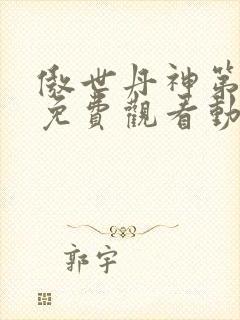 傲世丹神第
免費觀看動
郭宇